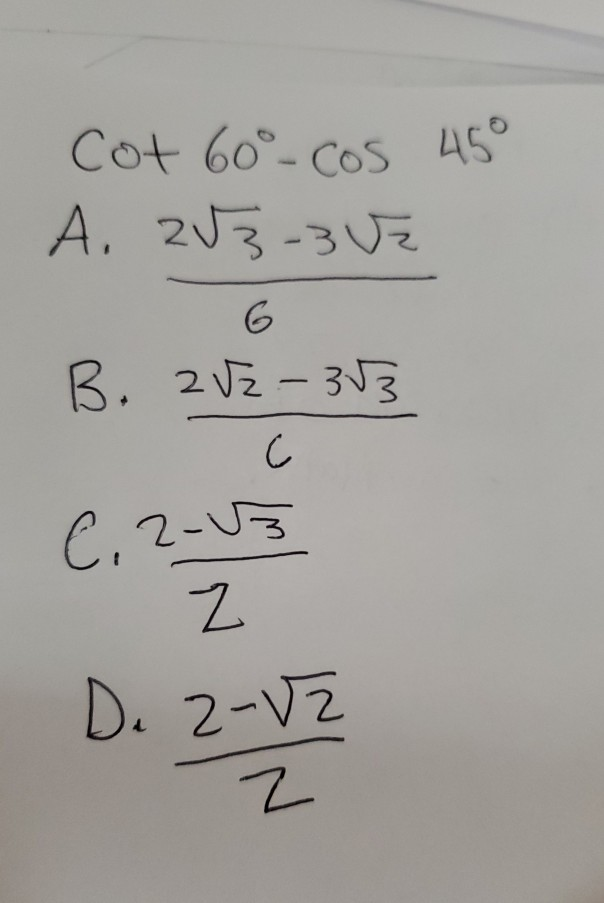 Cot 60° - cos 45°
A. 2√3 - 3√2
6
B. 2√2 - 3√3
6
C. 2-√3
2
D. 2-√2
2